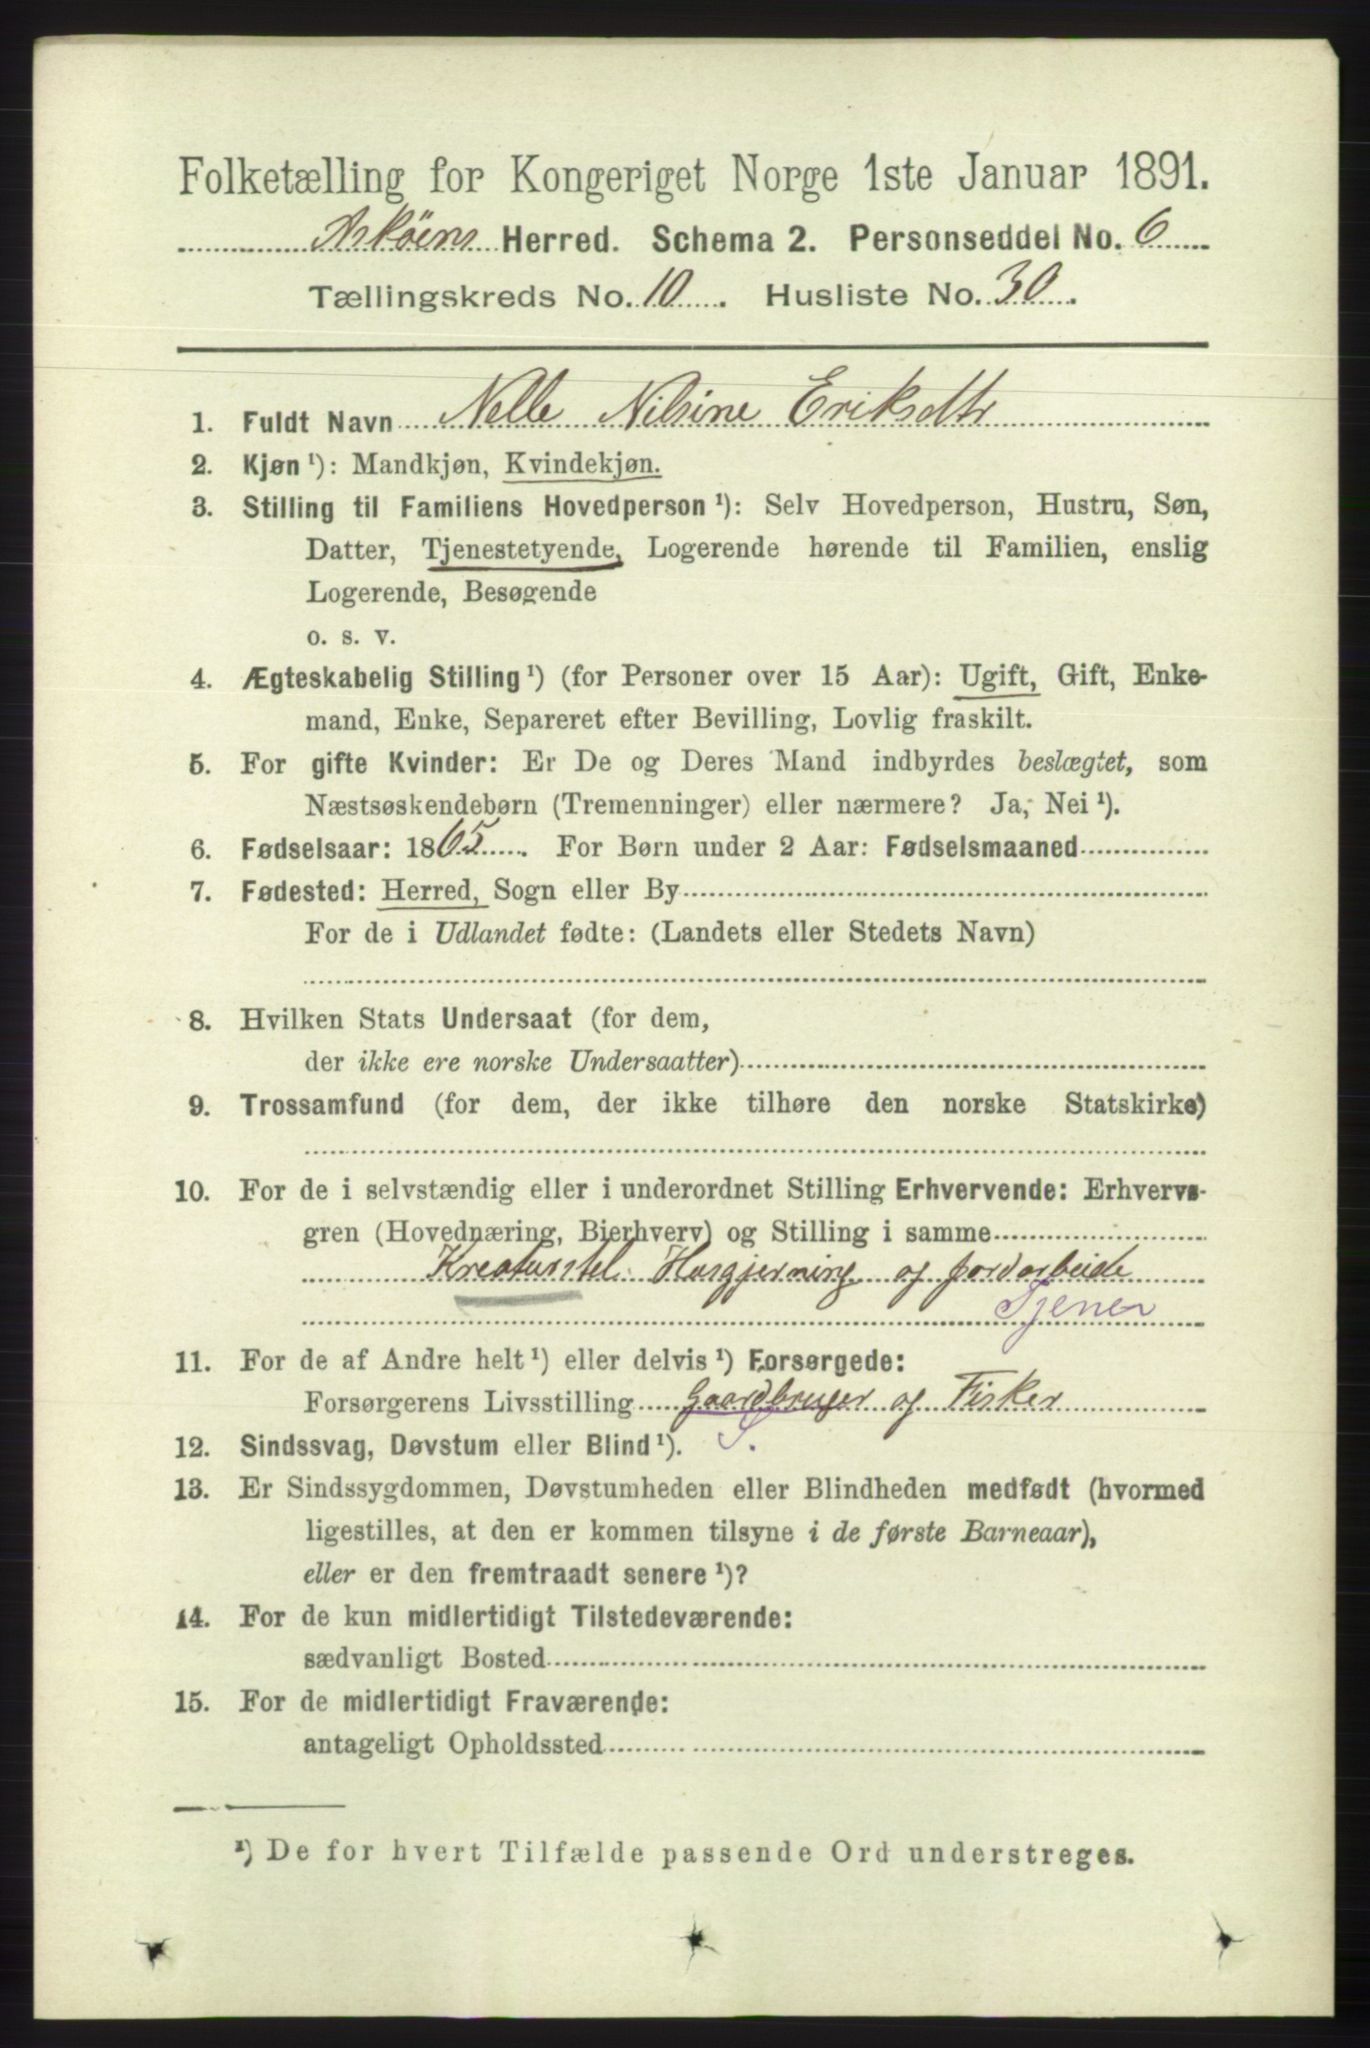 Folketælling for Kongeriget Norge 1ste Januar 1891.
Askøens Herred. Schema 2. Personseddel No. 6
Tællingskreds No. 10. Husliste No. 30.
1. Fuldt Navn Nelle Nilsine Eriksdtr
2. Kjøn¹): Mandkjøn, Kvindekjøn.
3. Stilling til Familiens Hovedperson¹): Selv Hovedperson, Hustru, Søn,
Datter, Tjenestetyende, Logerende hørende til Familien, enslig
Logerende, Besøgende
o. s. v.
4. Ægteskabelig Stilling¹) (for Personer over 15 Aar): Ugift, Gift, Enke-
mand, Enke, Separeret efter Bevilling, Lovlig fraskilt.
5. For gifte Kvinder: Er De og Deres Mand indbyrdes beslægtet, som
Næstsøskendebørn (Tremenninger) eller nærmere? Ja, Nei¹).
6. Fødselsaar: 1865. For Børn under 2 Aar: Fødselsmaaned
7. Fødested: Herred, Sogn eller By
For de i Udlandet fødte: (Landets eller Stedets Navn)
8. Hvilken Stats Undersaat (for dem,
der ikke ere norske Undersaatter)
9. Trossamfund (for dem, der ikke tilhøre den norske Statskirke)
10. For de i selvstændig eller i underordnet Stilling Erhvervende: Erhvervs-
gren (Hovednæring, Bierhverv) og Stilling i samme
Kreaturstel. Husgjerning og jordarbeide
Tjener
11. For de af Andre helt¹) eller delvis¹) Forsørgede:
Forsørgerens Livsstilling Gaardbruger og Fisker
12. Sindssvag, Døvstum eller Blind¹). S.
13. Er Sindssygdommen, Døvstumheden eller Blindheden medfødt (hvormed
ligestilles, at den er kommen tilsyne i de første Barneaar),
eller er den fremtraadt senere¹)?
14. For de kun midlertidigt Tilstedeværende:
sædvanligt Bosted
15. For de midlertidigt Fraværende:
antageligt Opholdssted
¹) De for hvert Tilfælde passende Ord understreges.